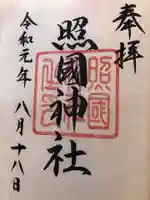 奉拝
照國神社
令和元年八月十八日
照國